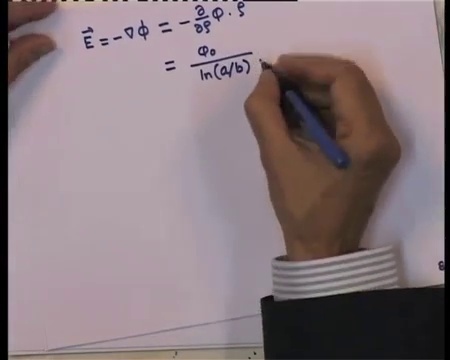 E⃗ = -∇Φ = - ∂/∂ρ Φ · ρ̂
= Φ₀ / ln(a/b)